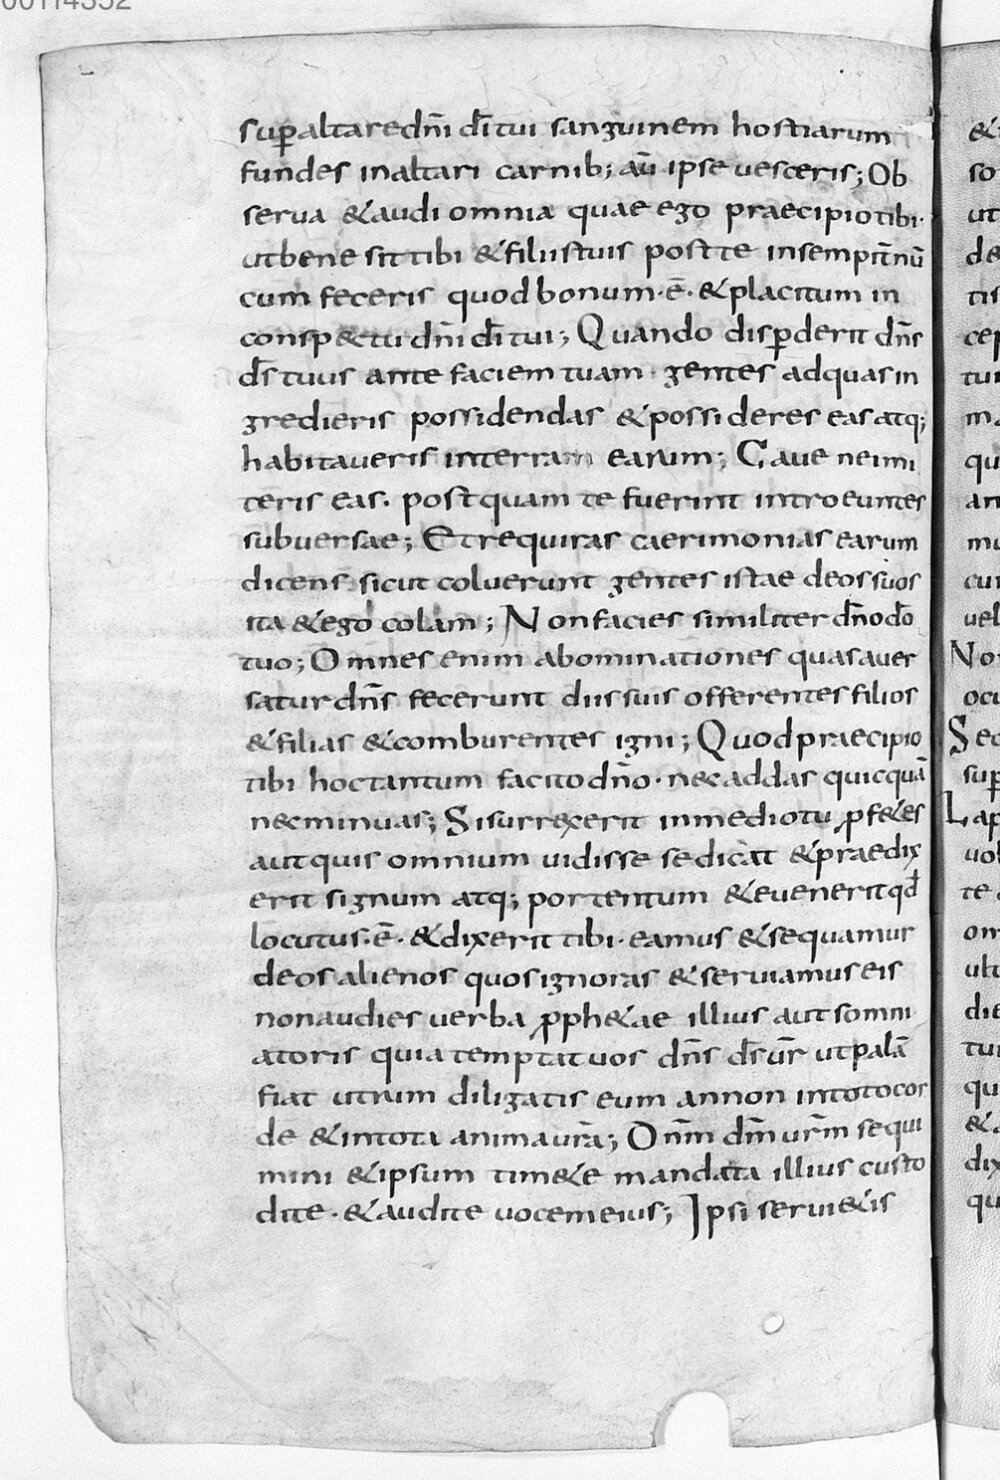 sup altare dn̄i dī tui sanguinem hostiarum
fundes in altari carnib; aū ipse vesceris; Ob
serva & audi omnia quae ego praecipio tibi·
ut bene sit tibi & filiis tuis post te in sempit̄nū
cum feceris quod bonum·ē· & placitum in
consp&tu dn̄i dī tui; Quando disp̄derit dn̄s
ds̄ tuus ante faciem tuam· gentes ad quas in
gredieris possidendas & possideres eas atq;
habitaveris in terram earum; Cave ne imi
teris eas· postquam te fuerint introeuntes
subversae; Et requiras caerimonias earum
dicens sicut coluerunt gentes istae deos suos
ita & ego colam; Non facies similiter dn̄o dō
tuo; Omnes enim abominationes quas aver
satur dn̄s fecerunt diis suis offerentes filios
& filias & comburentes igni; Quod praecipio
tibi hoc tantum facito dn̄o· nec addas quicquā
nec minuas; Si surrexerit in medio tu p̱f&es
aut quis omnium vidisse se dicat & praedix
erit signum atq; portentum & evenerit qd̄
locutus·ē· & dixerit tibi· eamus & sequamur
deos alienos quos ignoras & serviamus eis
non audies verba p̱ph&ae illius aut somni
atoris quia temptat vos dn̄s ds̄ ur̄ ut palā
fiat utrum diligatis eum an non in toto cor
de & in tota anima ur̄a; Dn̄m dm̄ ur̄m sequi
mini & ipsum tim&e mandata illius custo
dite· & audite vocem eius; Ipsi servi&is